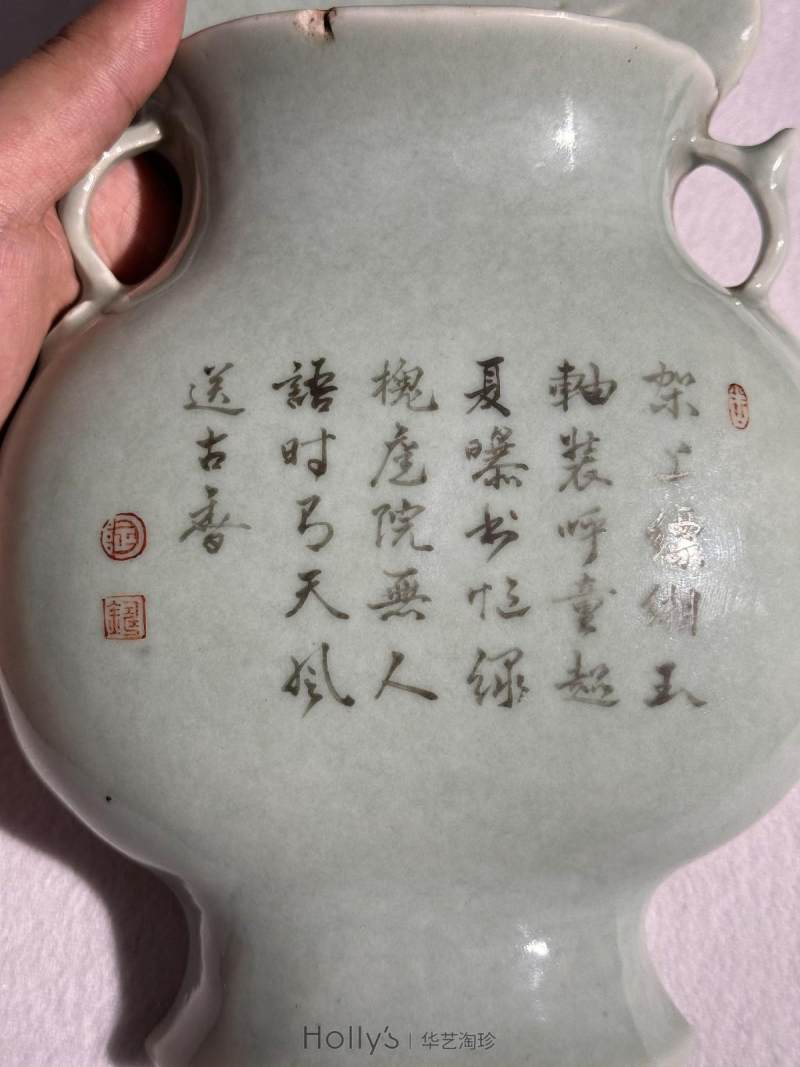 架上縹緗玉
軸装呼童趁
夏曝书忙绿
槐庭院無人
語时有天風
送古香
Holly's | 华艺淘珍